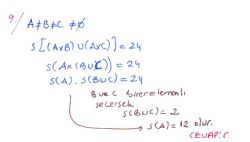 9.) A≠B≠C ≠∅
s[(AxB) ∪ (AxC)] = 24
s(Ax(B∪C)) = 24
s(A) . s(B∪C) = 24
B ve C birer elemanlı
seçersek
s(B∪C) = 2
s(A) = 12 olur.
CEVAP: C